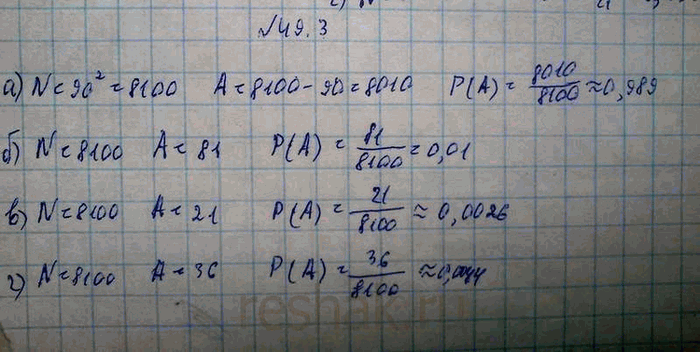 №49.3
а) N = 90² = 8100 A = 8100 - 90 = 8010 P(A) = 8010/8100 ≈ 0,989
б) N = 8100 A = 81 P(A) = 81/8100 = 0,01
в) N = 8100 A = 21 P(A) = 21/8100 ≈ 0,0026
г) N = 8100 A = 36 P(A) = 36/8100 ≈ 0,044
reshak.ru